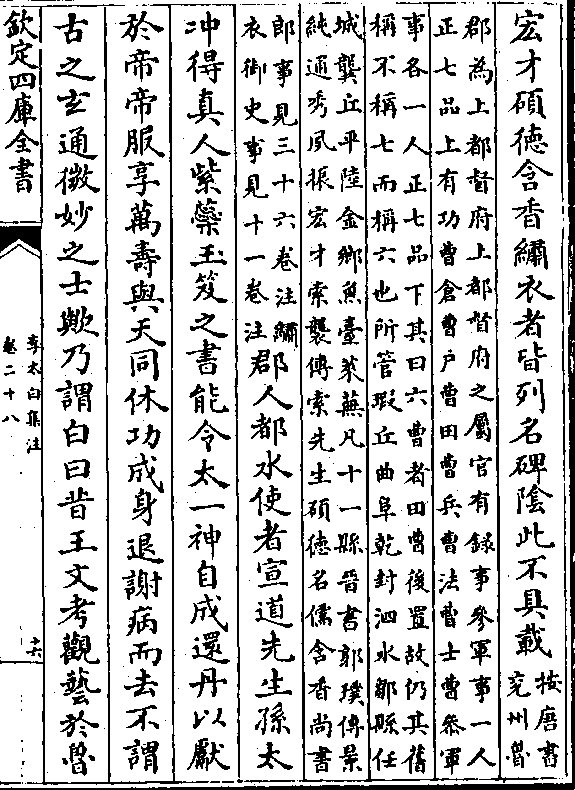 宏才碩徳含香繡衣者皆列名碑隂此不具載
按唐書
兖州魯
郡為上都督府上都督府之屬官有録事參軍事一人
正七品上有功曹倉曹户曹田曹兵曹法曹士曹叅軍
事各一人正七品下其曰六曹者田曹後置故仍其舊
稱不稱七而稱六也所管瑕丘曲阜乾封泗水鄒縣任
城龔丘平陸金鄉魚臺萊蕪凡十一縣晉書郭璞傳景
純通秀夙振宏才索襲傳索先生碩徳名儒含香尚書
郎事見三十六卷注繡
衣御史事見十一卷注
郡人都水使者宣道先生孫太
冲得真人紫蘂玉笈之書能令太一神自成還丹以獻
於帝帝服享萬壽與天同休功成身退謝病而去不謂
古之玄通微妙之士歟乃謂白曰昔王文考觀藝於魯
欽定四庫全書
李太白集注
卷二十八
十六